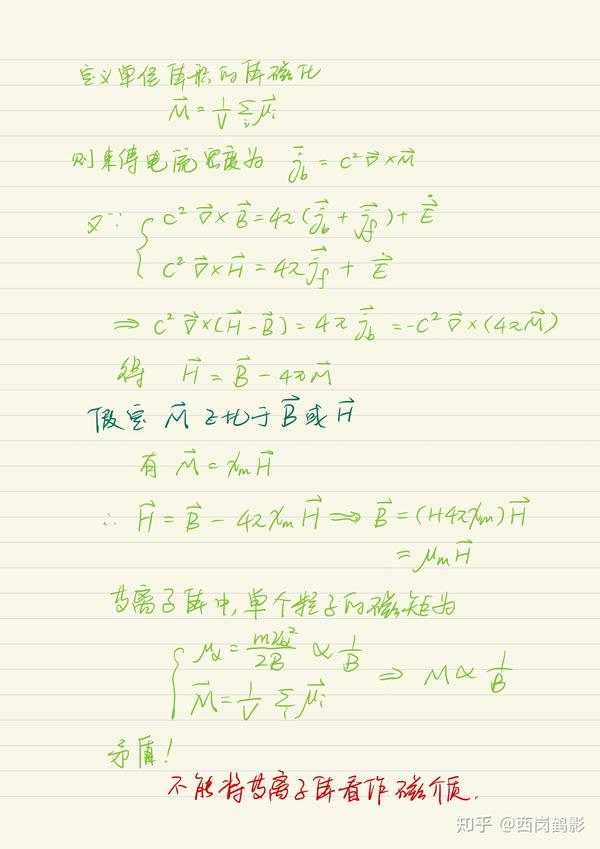 定义单位体积的体磁化
M⃗ = 1/V Σᵢ μ⃗ᵢ
则束缚电流密度为 j⃗_b = c² ∇⃗×M⃗
又∵ { c² ∇⃗×B⃗ = 4π(j⃗_b + j⃗_f) + E⃗̇
c² ∇⃗×H⃗ = 4π j⃗_f + E⃗̇
⇒ c² ∇⃗×(H⃗-B⃗) = 4π j⃗_b = -c² ∇⃗×(4πM⃗)
得 H⃗ = B⃗ - 4πM⃗
假定 M⃗ 正比于 B⃗ 或 H⃗
有 M⃗ = χₘ H⃗
∴ H⃗ = B⃗ - 4πχₘ H⃗ ⇒ B⃗ = (1+4πχₘ) H⃗
= μₘ H⃗
等离子体中,单个粒子的磁矩为
{ μ_α = mv_⊥²/2B ∝ 1/B
M⃗ = 1/V Σᵢ μ⃗ᵢ ⇒ M ∝ 1/B
矛盾!
不能将等离子体看作磁介质.
知乎 @西岗鹤影